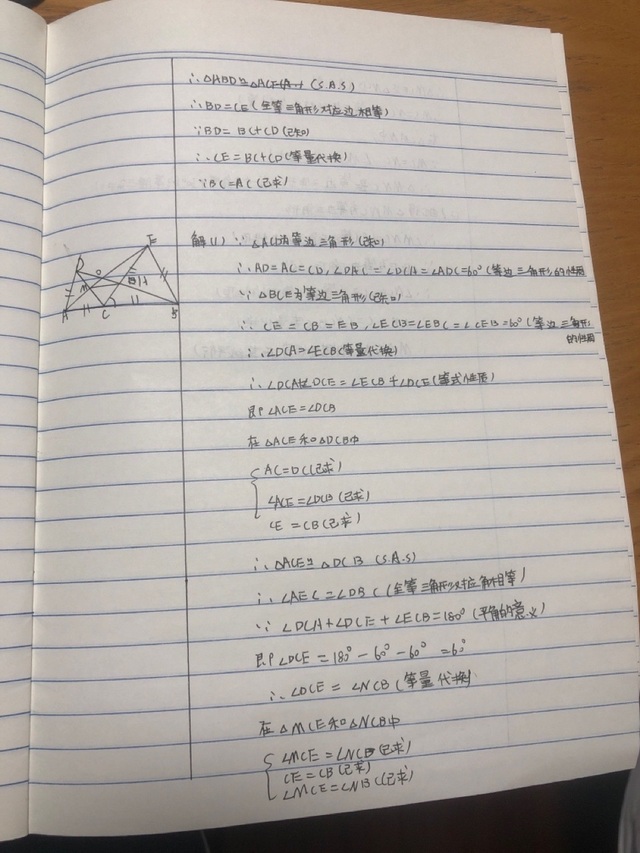 ∴△ABD≌△ACE (S.A.S)
∴BD=CE(全等三角形对应边相等)
∵BD=BC+CD(已知)
∴CE=BC+CD(等量代换)
∵BC=AC(已求)
解(1)∵△ACD为等边三角形(已知)
∴AD=AC=CD,∠DAC=∠DCA=∠ADC=60°(等边三角形的性质
∵△BCE为等边三角形(已知)
∴CE=CB=EB,∠ECB=∠EBC=∠CEB=60°(等边三角形
的性质
∴∠DCA=∠ECB(等量代换)
∴∠DCA+∠DCE=∠ECB+∠DCE(等式性质)
即∠ACE=∠DCB
在△ACE和△DCB中
AC=DC(已求)
∠ACE=∠DCB(已求)
CE=CB(已求)
∴△ACE≌△DCB (S.A.S)
∴∠AEC=∠DBC(全等三角形对应角相等)
∵∠DCA+∠DCE+∠ECB=180°(平角的意义)
即∠DCE=180°-60°-60°=60°
∴∠DCE=∠NCB(等量代换)
在△MCE和△NCB中
∠MCE=∠NCB(已求)
CE=CB(已求)
∠MCE=∠NB(已求)
D
E
M
A
C
B